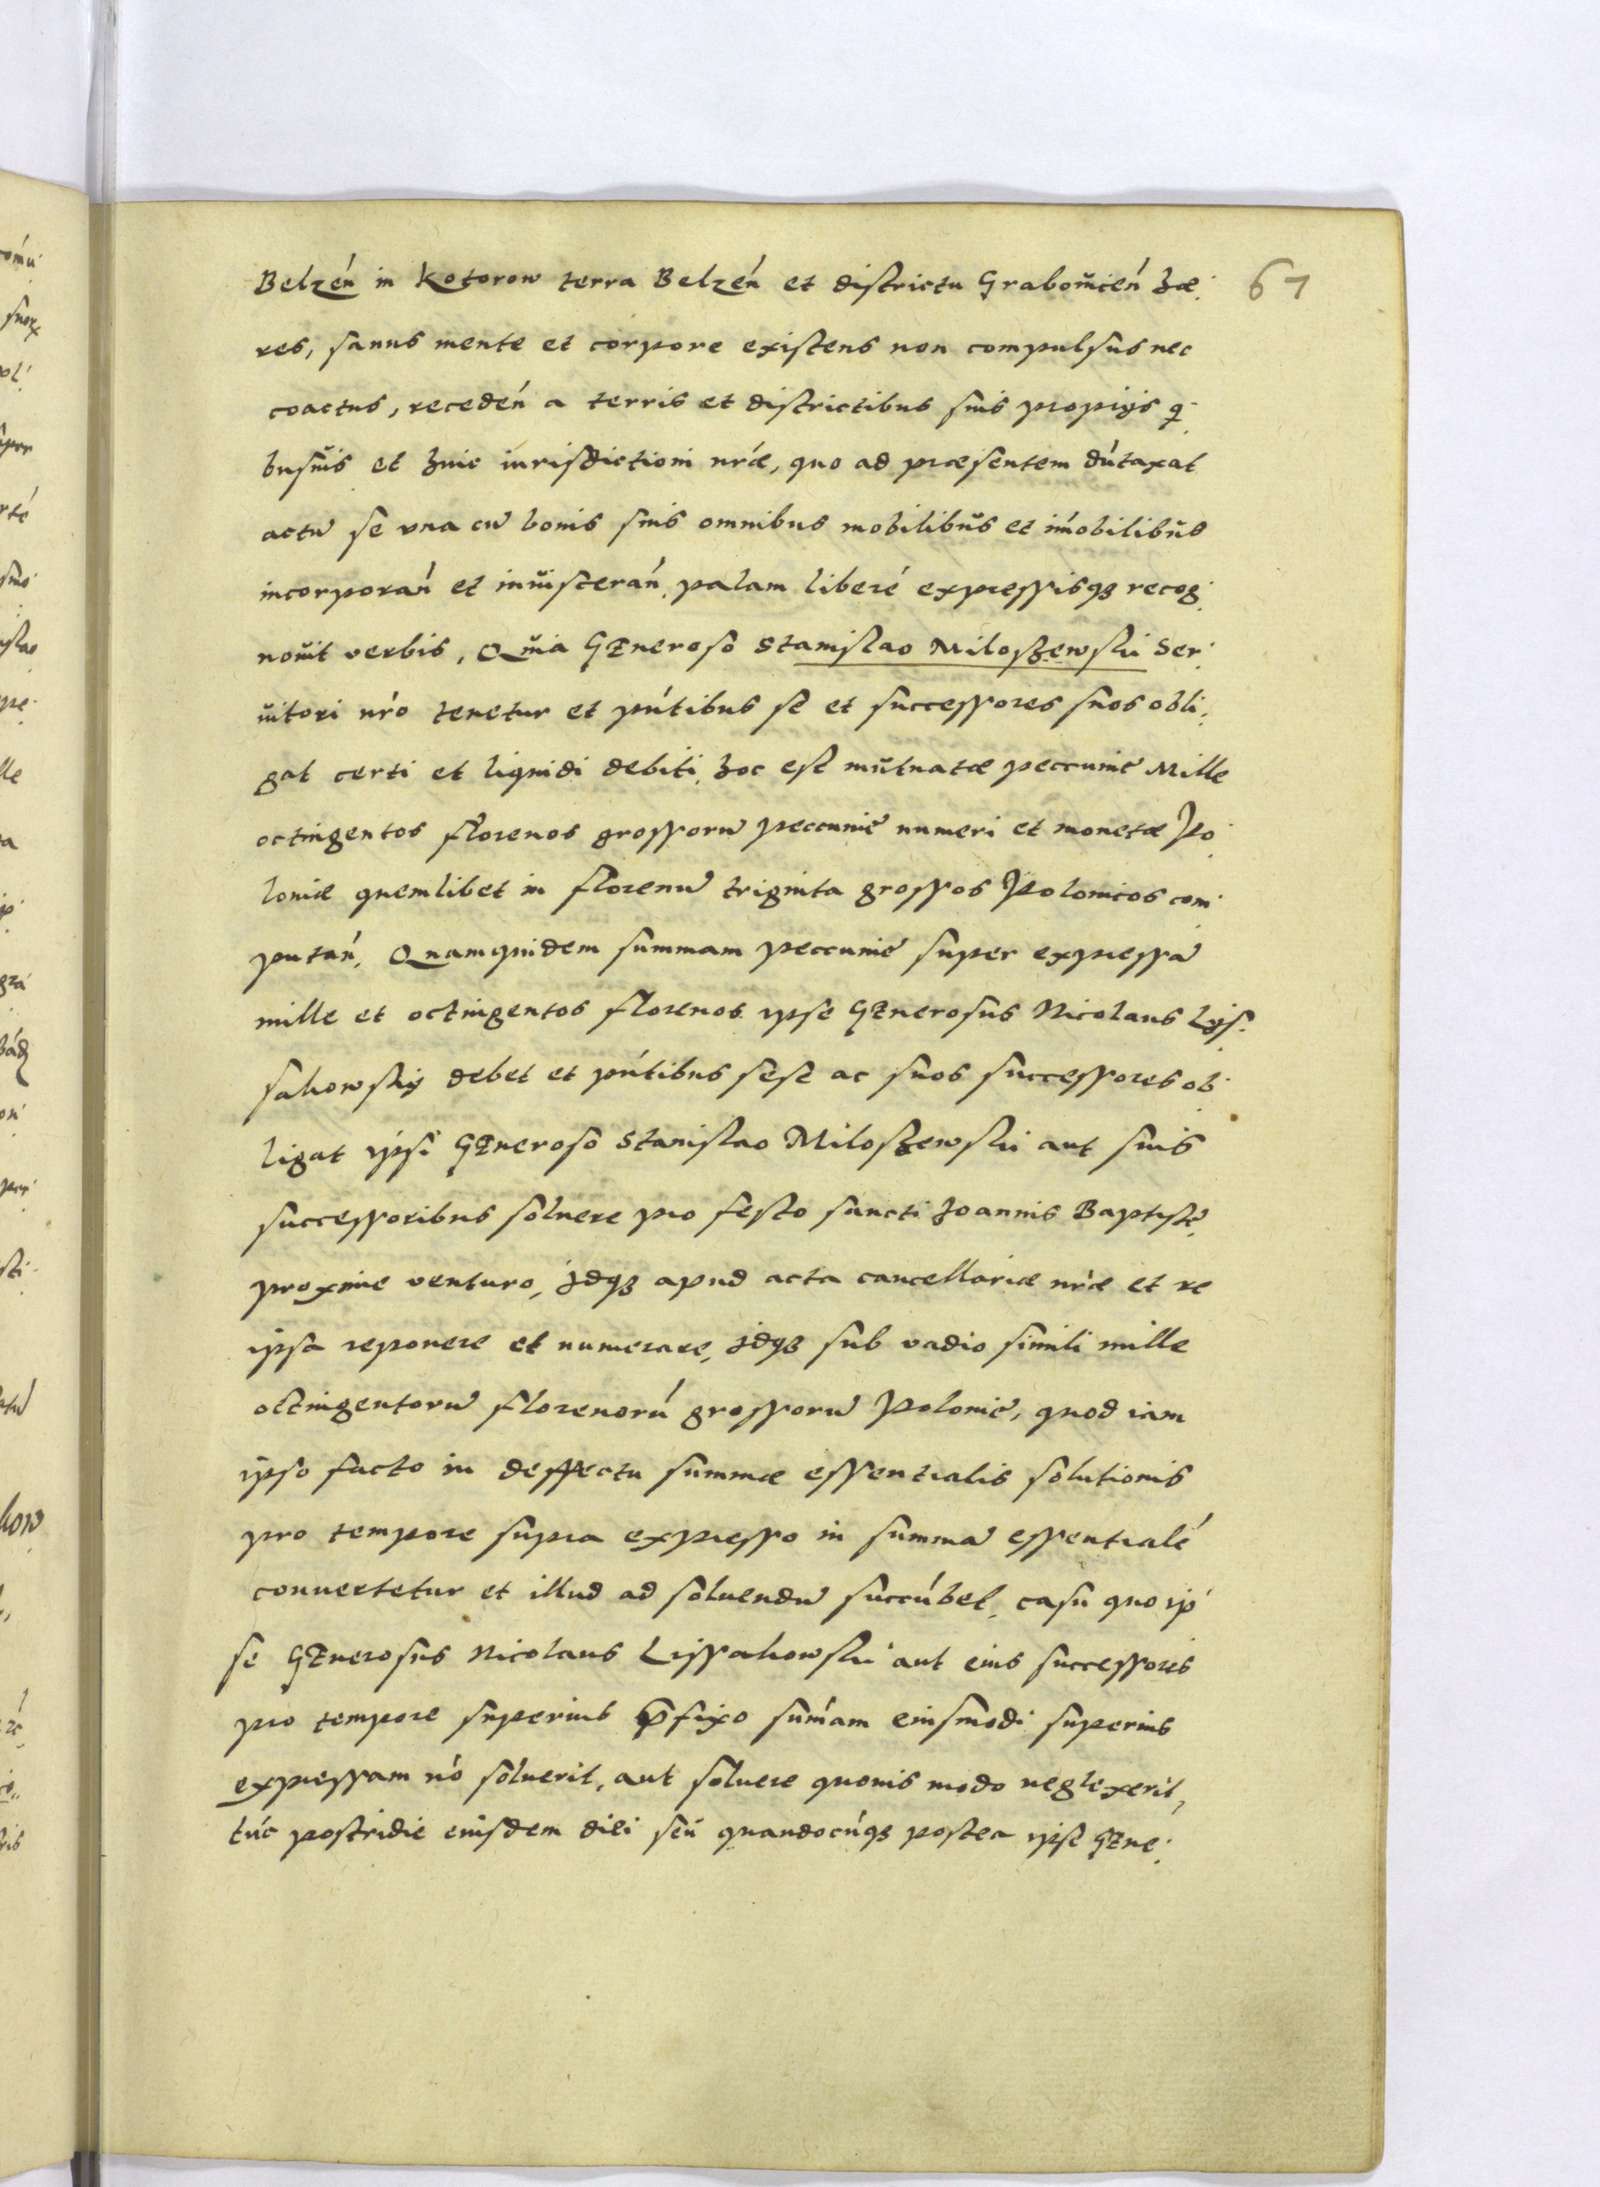 Belzeń in Kotorow terra Belzeń et districtu Graboŭicień hæ. 67
res, sanus mente et corpore existens non compulsus nec
coactus, recedeń a terris et districtibus suis propijs q̄.
busŭis et huic iurisdictioni nr̄æ, quo ad præsentem dūtaxat
actū se una cū bonis suis omnibus mobilibŭs et im̄obilibŭs
incorporań et inŭisceràń, palam liberé expressisq3 recog.
noŭit verbis, Qŭia GEneroso Stanislao Miloszewski Ser.
ŭitori nr̄o tenetur et pn̄tibus se et successores suos obli.
gat certi et liquidi debiti, hoc est mŭtuatæ peccuniē Mille
octingentos florenos grossorū peccuniē numeri et monetæ Po
loniæ quemlibet in florenū triginta grossos Polonicos com
putań, Quamquidem summam peccuniē super expressā
mille et octingentos florenos ypse GEnerosus Nicolaus Lys.
sakowskij debet et pn̄tibus sese ac suos successores ob
ligat ypsi GEneroso Stanislao Miloszewski aut suis
successoribus soluere pro festo sancti Joannis Baptistē
proxime venturo, Jdq3 apud acta cancellariæ nr̄æ et re
ipsa reponere et numerare, Jdq3 sub vadio simili mille
octingentorū florenorū grossorū Poloniē, quod iam
ipso facto in deffectu summæ essentialis solutionis
pro tempore supra expresso in summā essentialē
conuertetur et illud ad soluendū succūbet, casu quo ip
se GEnerosus Nicolaus Lissakowski aut eius successores
pro tempore superius p̄fixo sum̄am eiusmodi superius
expressam nō soluerit, aut soluere quouis modo neglexerit,
tūc postridie eiusdem diei seŭ quandocūq3 postea ipse GEne.